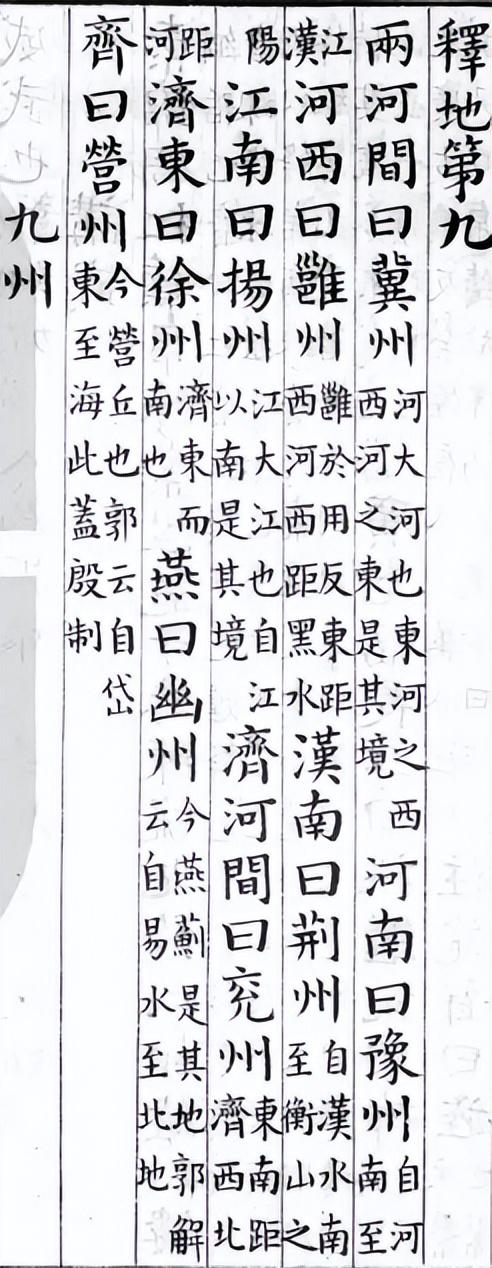 釋地第九
兩河間曰冀州河大河也東河之西西河之東是其境河南曰豫州自河南至
江漢河西曰雝州雝於用反東距西河西距黑水漢南曰荆州自漢水南至衡山之
陽江南曰揚州江大江也自江以南是其境濟河間曰兖州東南距濟西北
距河濟東曰徐州濟東而南也燕曰幽州今燕薊是其地郭解云自易水至北地
齊曰營州今營丘也郭云自岱東至海此蓋殷制
九州